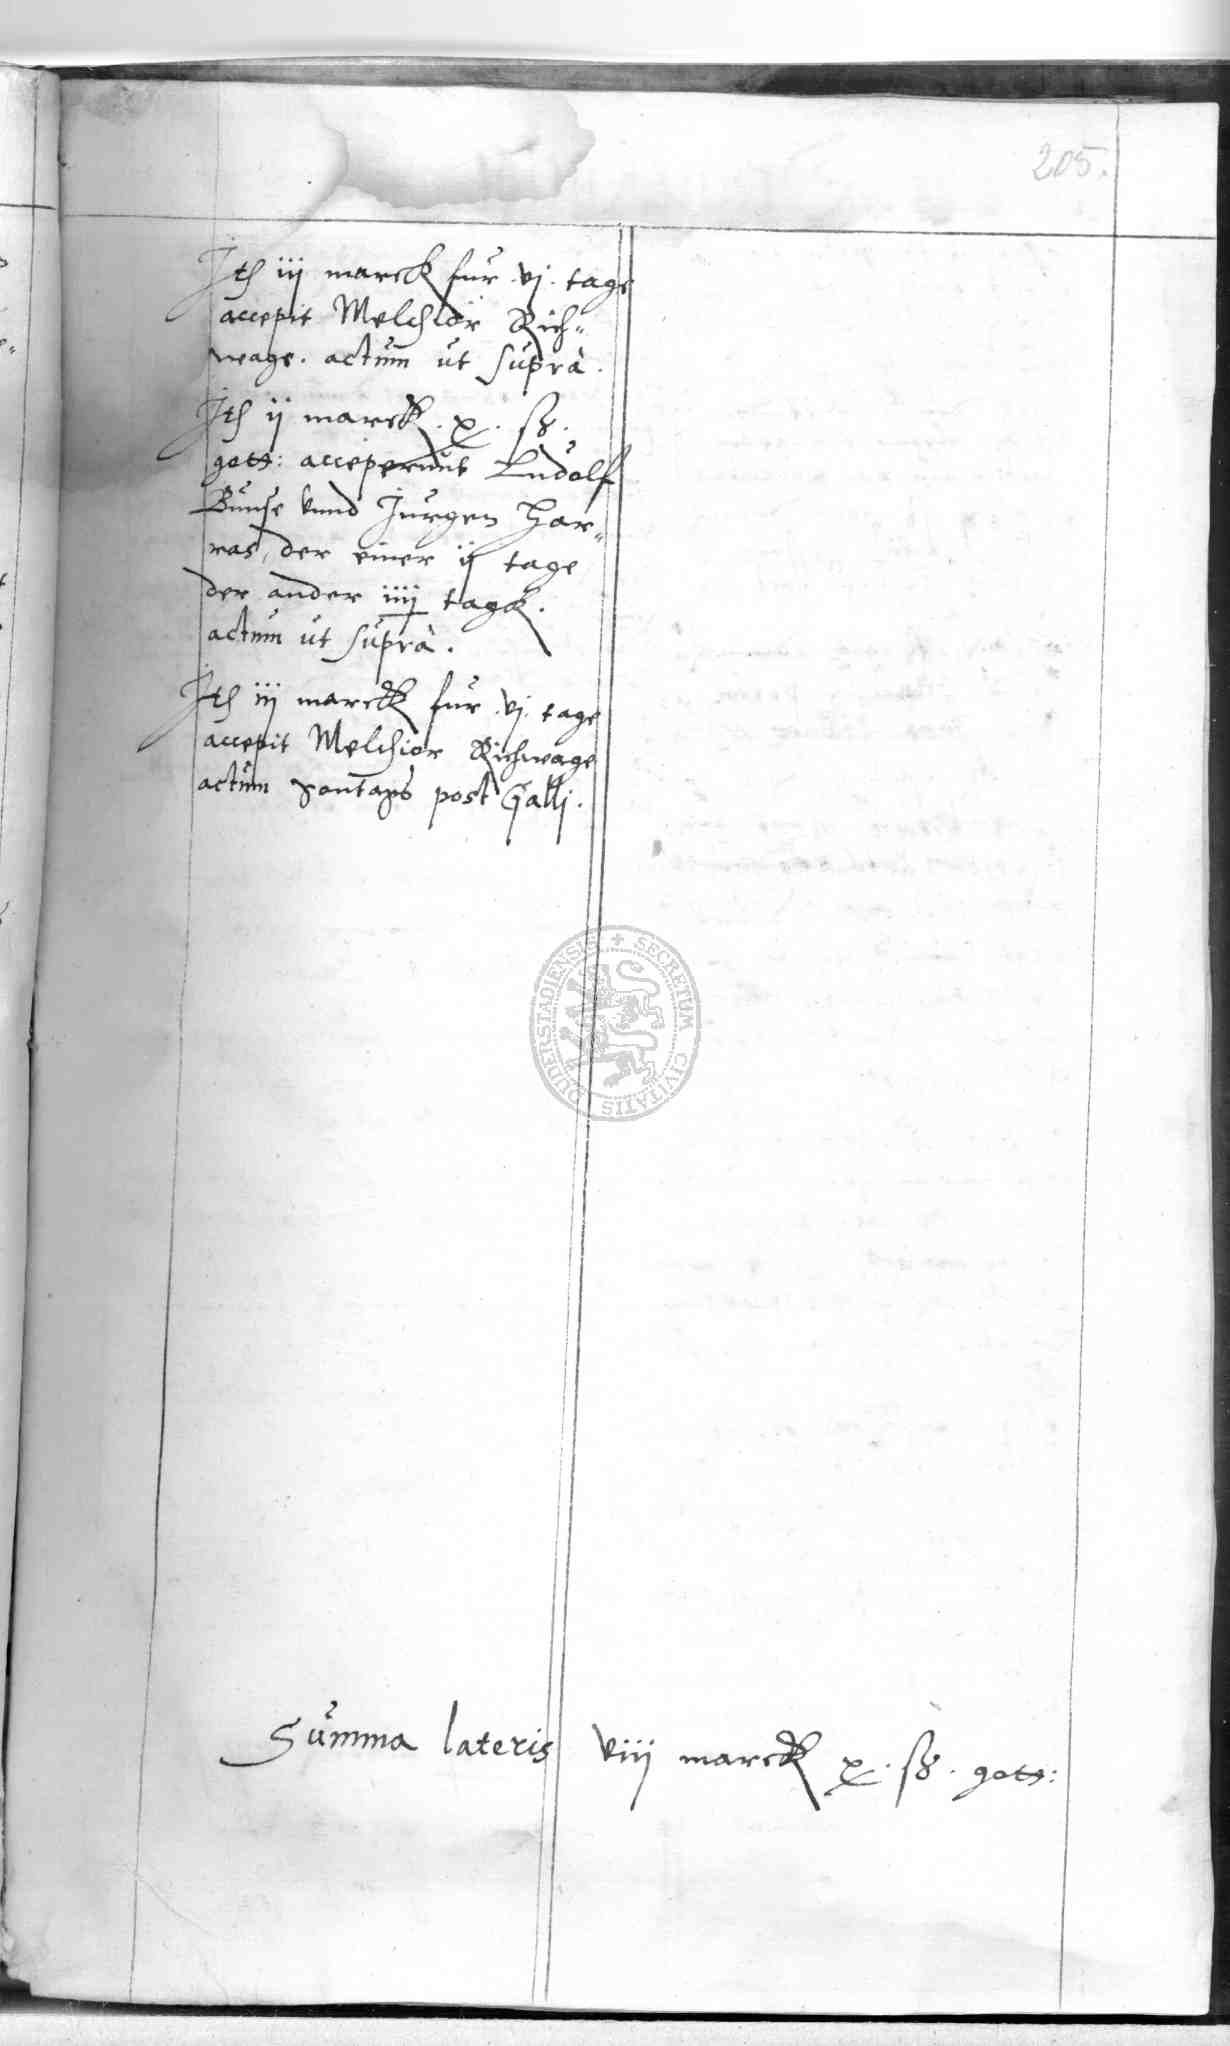 205.
Ith iij marck fur .vj. tage
accepit Melchior Rich-
wage. actum ut supra.
Ith ij marck .x. ß.
gott: acceperunt Ludolf
Bunse vnnd Jurgen Har-
ras, der einer ij tage
der ander iiij tage.
actum ut supra.
Ith iij marck fur .vj. tage
accepit Melchior Richwage
actum sontags post Galli.
SECRETUM CIVITATIS DUDERSTADIENSIS
Summa lateris viij marck x. ß. gott: